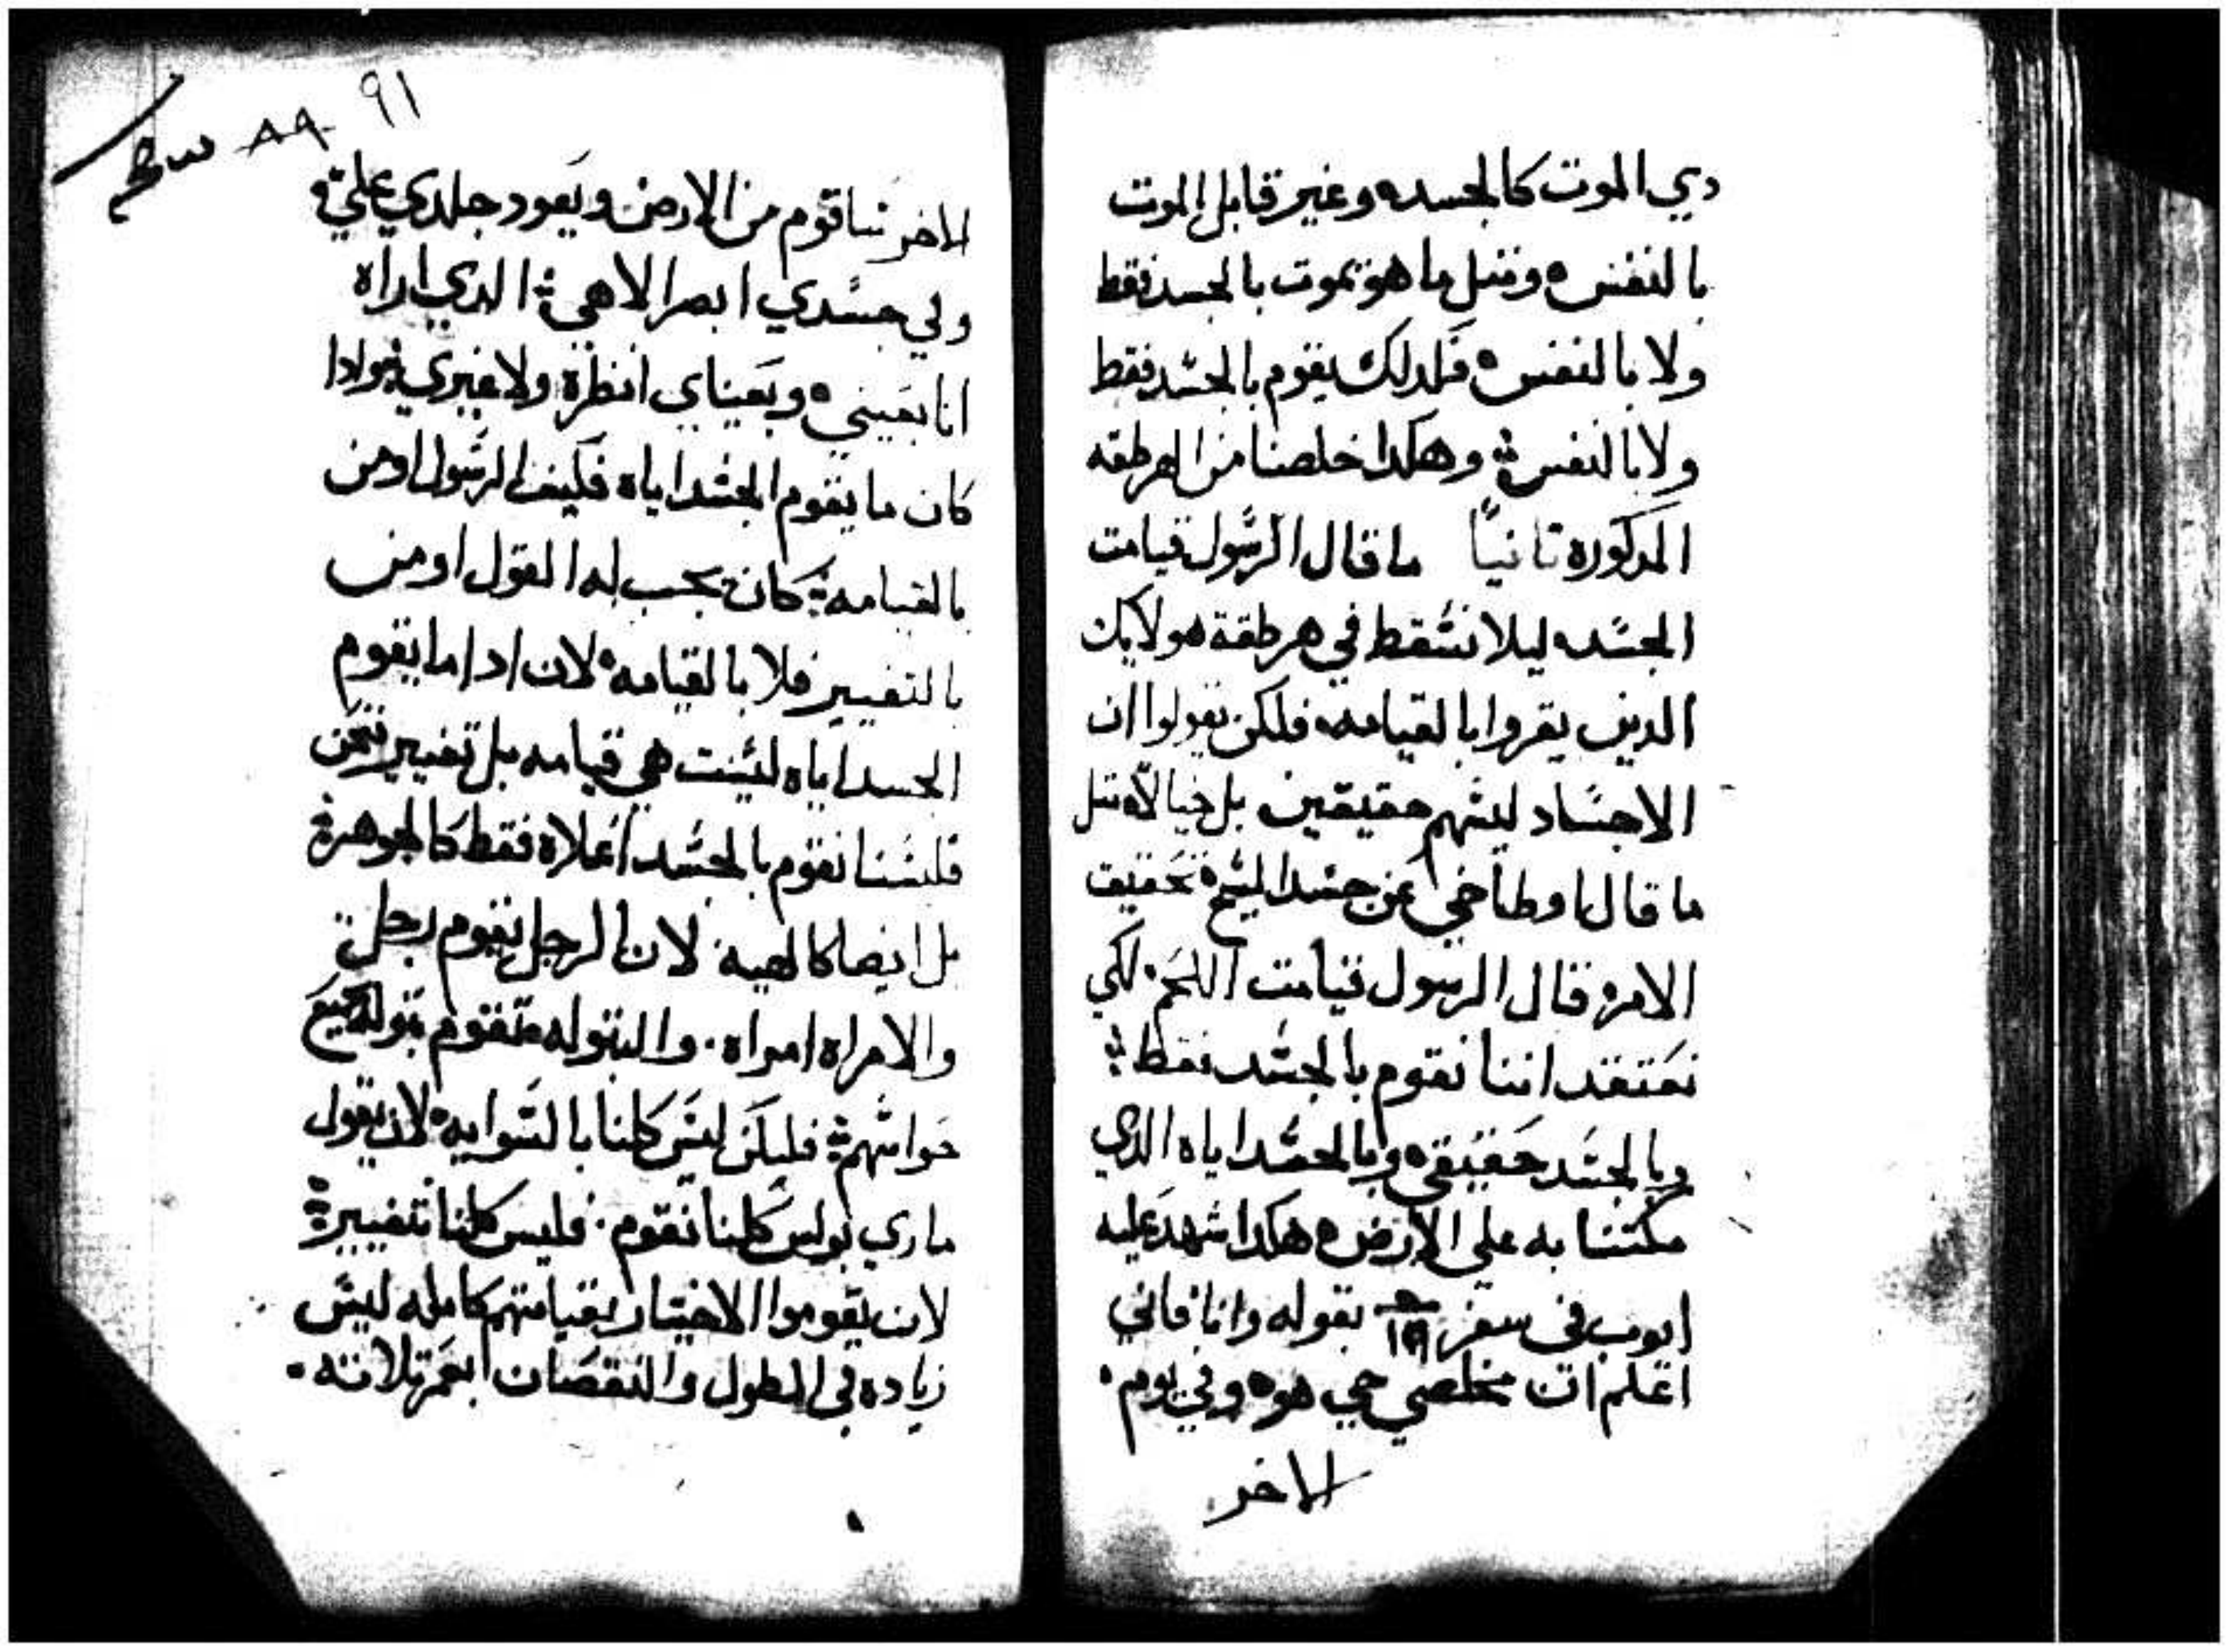 دي الموت كالجسده وغير قابل الموت
بالنفس ه ومتل ما هو يموت بالجسد فقط
ولا بالنفس ه فلدلك يقوم بالجسد فقط
ولا بالنفس وهكدا خلصنا من الهرطقه
المدكوره تانياً ما قال الرسول قيامت
الجسده ليلا نسقط في هرطقة هولايك
الدين يقروا بالقيامه فلكن يقولوا ان
الاجساد ليسهم حقيقين بل خيالاه متل
ما قال اوطاخي عن جسد المسيح ه تحقيق
الامره قال الرسول قيامت اللحم لكي
نعتقد اننا نقوم بالجسد فقط
وبالجسد حقيقي ه وبالجسد اياه الدي
مكتنا به علي الارض ه هكدا شهد عليه
ايوب في سفر ١٩ بقوله وانا فاني
اعلم ان مخلصي حي هوه وفي يوم
الاخر
٩١
٨٩
الاخر ساقوم من الارض ويعود جلدي علي و
وفي جسدي ابصر الاهي الدي اراه
انا بعيني ه وبعيناي انظره ولا غيري فوادا
كان ما يقوم الجسد اياه فكيف الرسول اومن
بالقيامه كان يجب له القول اومن
بالتغيير فلا بالقيامه لان ادا ما يقوم
الجسد اياه ليست هي قيامه بل تغيير فنحن
فليسنا نقوم بالجسد اعلاه فقط كالجوهرة
بل ايضا كالهيه لان الرجل يقوم رجل
والامراه امراه والبتوله تقوم بتوله جميع
حواسهم فليكن ليس كلنا بالسوايه لان يقول
ماري بولس كلنا نقوم فليس كلنا نتغيير
لان يقوموا الاخيار بقيامتهم كامله ليس
زياده في الطول والنقصان ابعمر تلاته